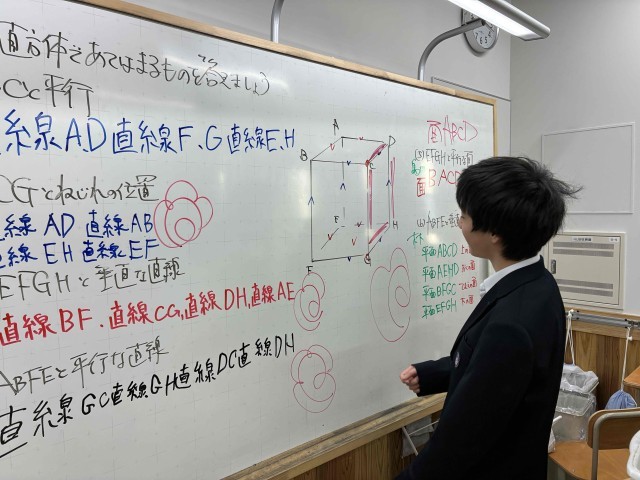 直方体であてはまるものを答えましょう
BCと平行
直線AD 直線F,G 直線E,H
CGとねじれの位置
直線 AD 直線AB
直線 EH 直線EF
EFGHと垂直な直線
直線BF.直線CG,直線DH,直線AE
ABFEと平行な直線
直線GC直線GH直線DC直線DH
A
D
B
C
E
H
F
G
面ABCD
EFGHと平行な面
面
ABFEと
平面ABCD
平面AEHD
平面BFGC
平面EFGH